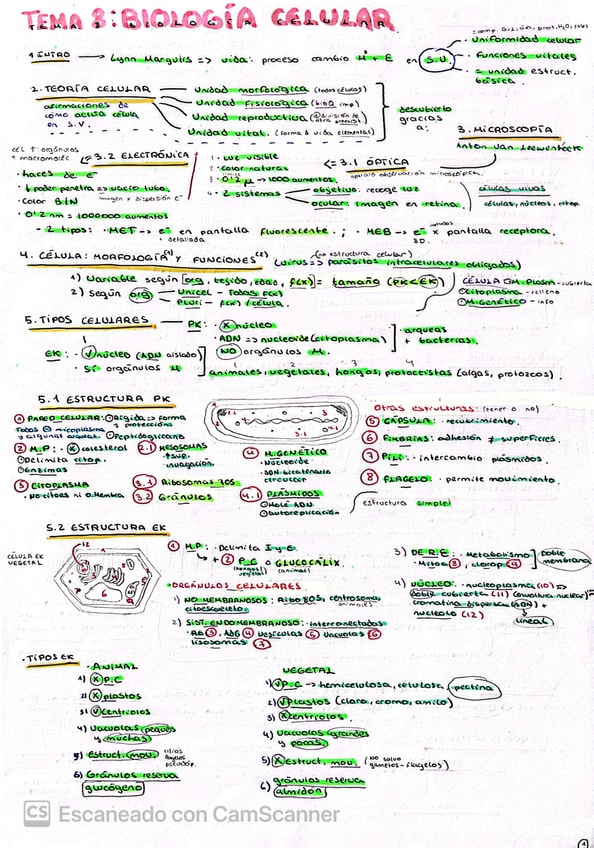 TEMA 8: BIOLOGÍA CELULAR
1. INTRO → Lynn Margulis => vida: proceso cambio M + E en S.V.
· Uniformidad celular
· Funciones vitales
· = unidad estruct. básica.
2. TEORÍA CELULAR
afirmaciones de cómo actúa célula en S.V.
Unidad morfológica (todos células)
Unidad Fisiológica (bioq imp)
Unidad reproductiva
Unidad vital. (forma d vida elemental)
descubierto gracias a:
3. MICROSCOPÍA
Anton Van Leewenhoek
cél ↑: orgánulos + macromoléc
<= 3.2 ELECTRÓNICA
· haces de e-
· ↑ poder penetra => vacío tubo.
· Color B/N imagen x dispersión e-
· 0'2 nm = 1000000 aumentos
- 2 tipos: · MET → e- en pantalla fluorescente. ; · MEB → e- x pantalla receptora.
+ detallada
3D.
<= 3.1 ÓPTICA
aparato observación microscópica.
1. luz visible
2. Color natural
3. 0'2 µ → 1000 aumentos
4. 2 sistemas
objetivo: recoge luz
ocular: imagen en retina.
células vivas
células, núcleos, citop
4. CÉLULA: MORFOLOGÍA(1) Y FUNCIONES(2)
(no estructura celular)
(virus => parásitos intracelulares obligados)
1) Variable según [org, tejido, edad, f(x)] = tamaño (PK < EK)
2) Según org
Unicel - Todas f(x)
Pluri - f(x) / célula.
CÉLULA
M. Plasm - cubierta
Citoplasma - relleno
M. Genético - info
5. TIPOS CELULARES → PK: · X núcleo
· ADN => nucleoide (citoplasma)
· NO orgánulos M.
· arqueas + bacterias.
EK: · √ núcleo (ADN aislado)
· Sí orgánulos M
1 2 3 4
animales, vegetales, hongos, protoctistas (algas, protozoos).
5.1 ESTRUCTURA PK
1 PARED CELULAR: Rígida => forma y protección
Todos micoplasma y algunas arqueas.
Peptidoglicano
2 M.P: · X colesterol
Delimita citop.
enzimas
2.1 MESOSOMAS
↑ sup. invagación
3 CITOPLASMA
· No citoes ni o. Membra
3.1 Ribosomas 70S
3.2 Gránulos
4 M. GENÉTICO
· Nucleoide
· ADN bicatenario circular
4.1 PLÁSMIDOS
Molé ADN
autoreplicación
Otras estructuras: (tener o no)
5 CÁPSULA: · recubrimiento.
6 Fimbrias: adhesión ≠ superficies.
7 PILI: · intercambio plásmidos.
8 FLAGELO: · permite movimiento.
estructura simple
5.2 ESTRUCTURA EK
CÉLULA EK VEGETAL
1 M.P: · Delimita I y E
+ 2 P.C o GLUCOCÁLIX
(hongos/vegetal) (animal)
· ORGÁNULOS CELULARES
1) NO MEMBRANOSOS: Ribo 80S, centrosoma, citoesqueleto.
animales
2) SIST. ENDOMEMBRANOSO: · interconectados
· RE 3, AdG 4 Vesículas 5 Vacuolas 6
lisosomas 7
3) DE R.E: · Metabolismo
· Mitoc 8, clorop 9
Doble membrana
4) NÚCLEO: · nucleoplasma (10) =>
doble cubierta (11) (envoltura nuclear) =>
cromatina dispersa (ADN) +
nucleolo (12)
lineal
· TIPOS EK
· ANIMAL
1) X P.C
2) X plastos
3) √ Centriolos
4) Vacuolas pequeñ y muchas
5) Estruct. mov.
cilios
flagelos
pseudop.
6) Gránulos reserva
glucógeno
VEGETAL
1) √ P.C → hemicelulosa, celulosa, pectina
2) √ Plastos (cloro, cromo, amilo)
3) X centriolos.
4) Vacuolas grandes y pocas.
5) X Estruct. mov. (NO salvo gametos - flagelos)
6) gránulos reserva
almidón
CS Escaneado con CamScanner
1